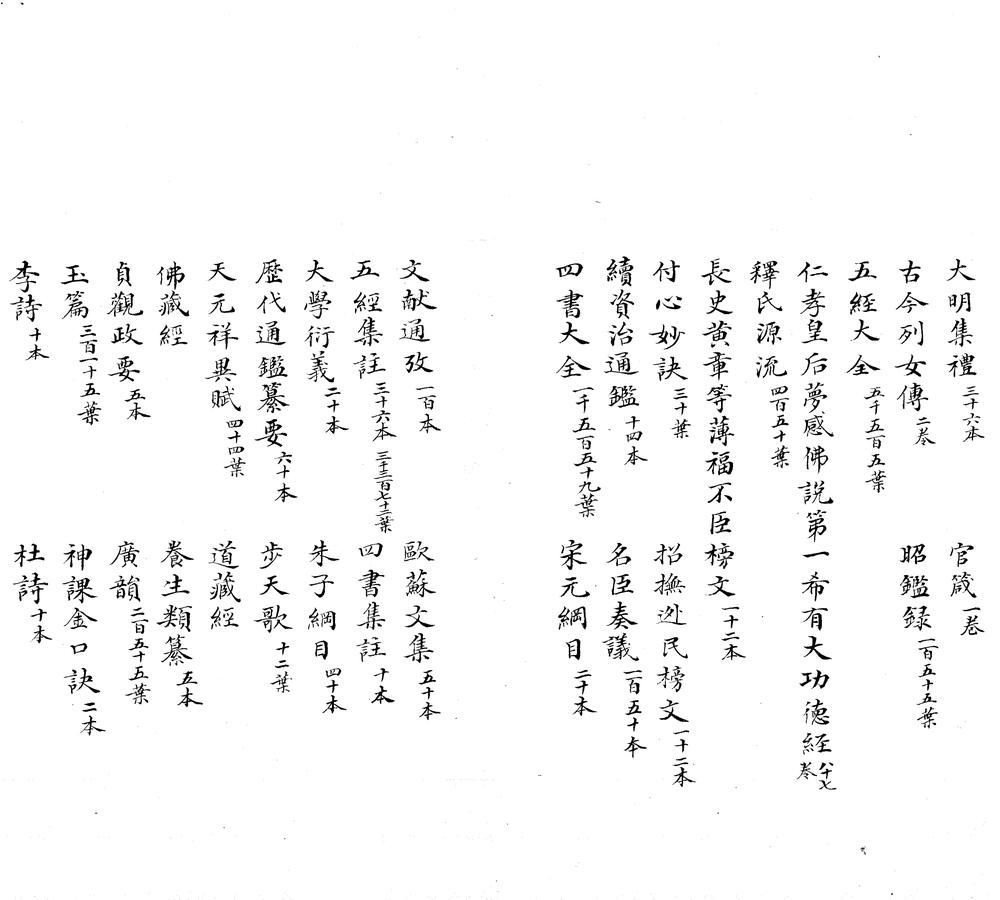 大明集禮三十六本 官箴一巻
古今列女傳二巻 昭鑑録一百五十五葉
五經大全五千五百五葉
仁孝皇后夢感佛說第一希有大功德經八十七巻
釋氏源流四百五十葉
長史黄章等薄福不臣榜文一十二本
付心妙訣三十葉 招撫迯民榜文一十二本
續資治通鑑十四本 名臣奏議一百五十本
四書大全一千五百五十九葉 宋元綱目二十本
文献通攷一百本 歐蘇文集五十本
五經集註三十六本 三千三百七十二葉 四書集註十本
大學衍義二十本 朱子綱目四十本
歷代通鑑纂要六十本 步天歌十二葉
天元祥異賦四十四葉 道藏經
佛藏經 養生類纂五本
貞觀政要五本 廣韻二百五十五葉
玉篇三百一十五葉 神課金口訣二本
李詩十本 杜詩十本